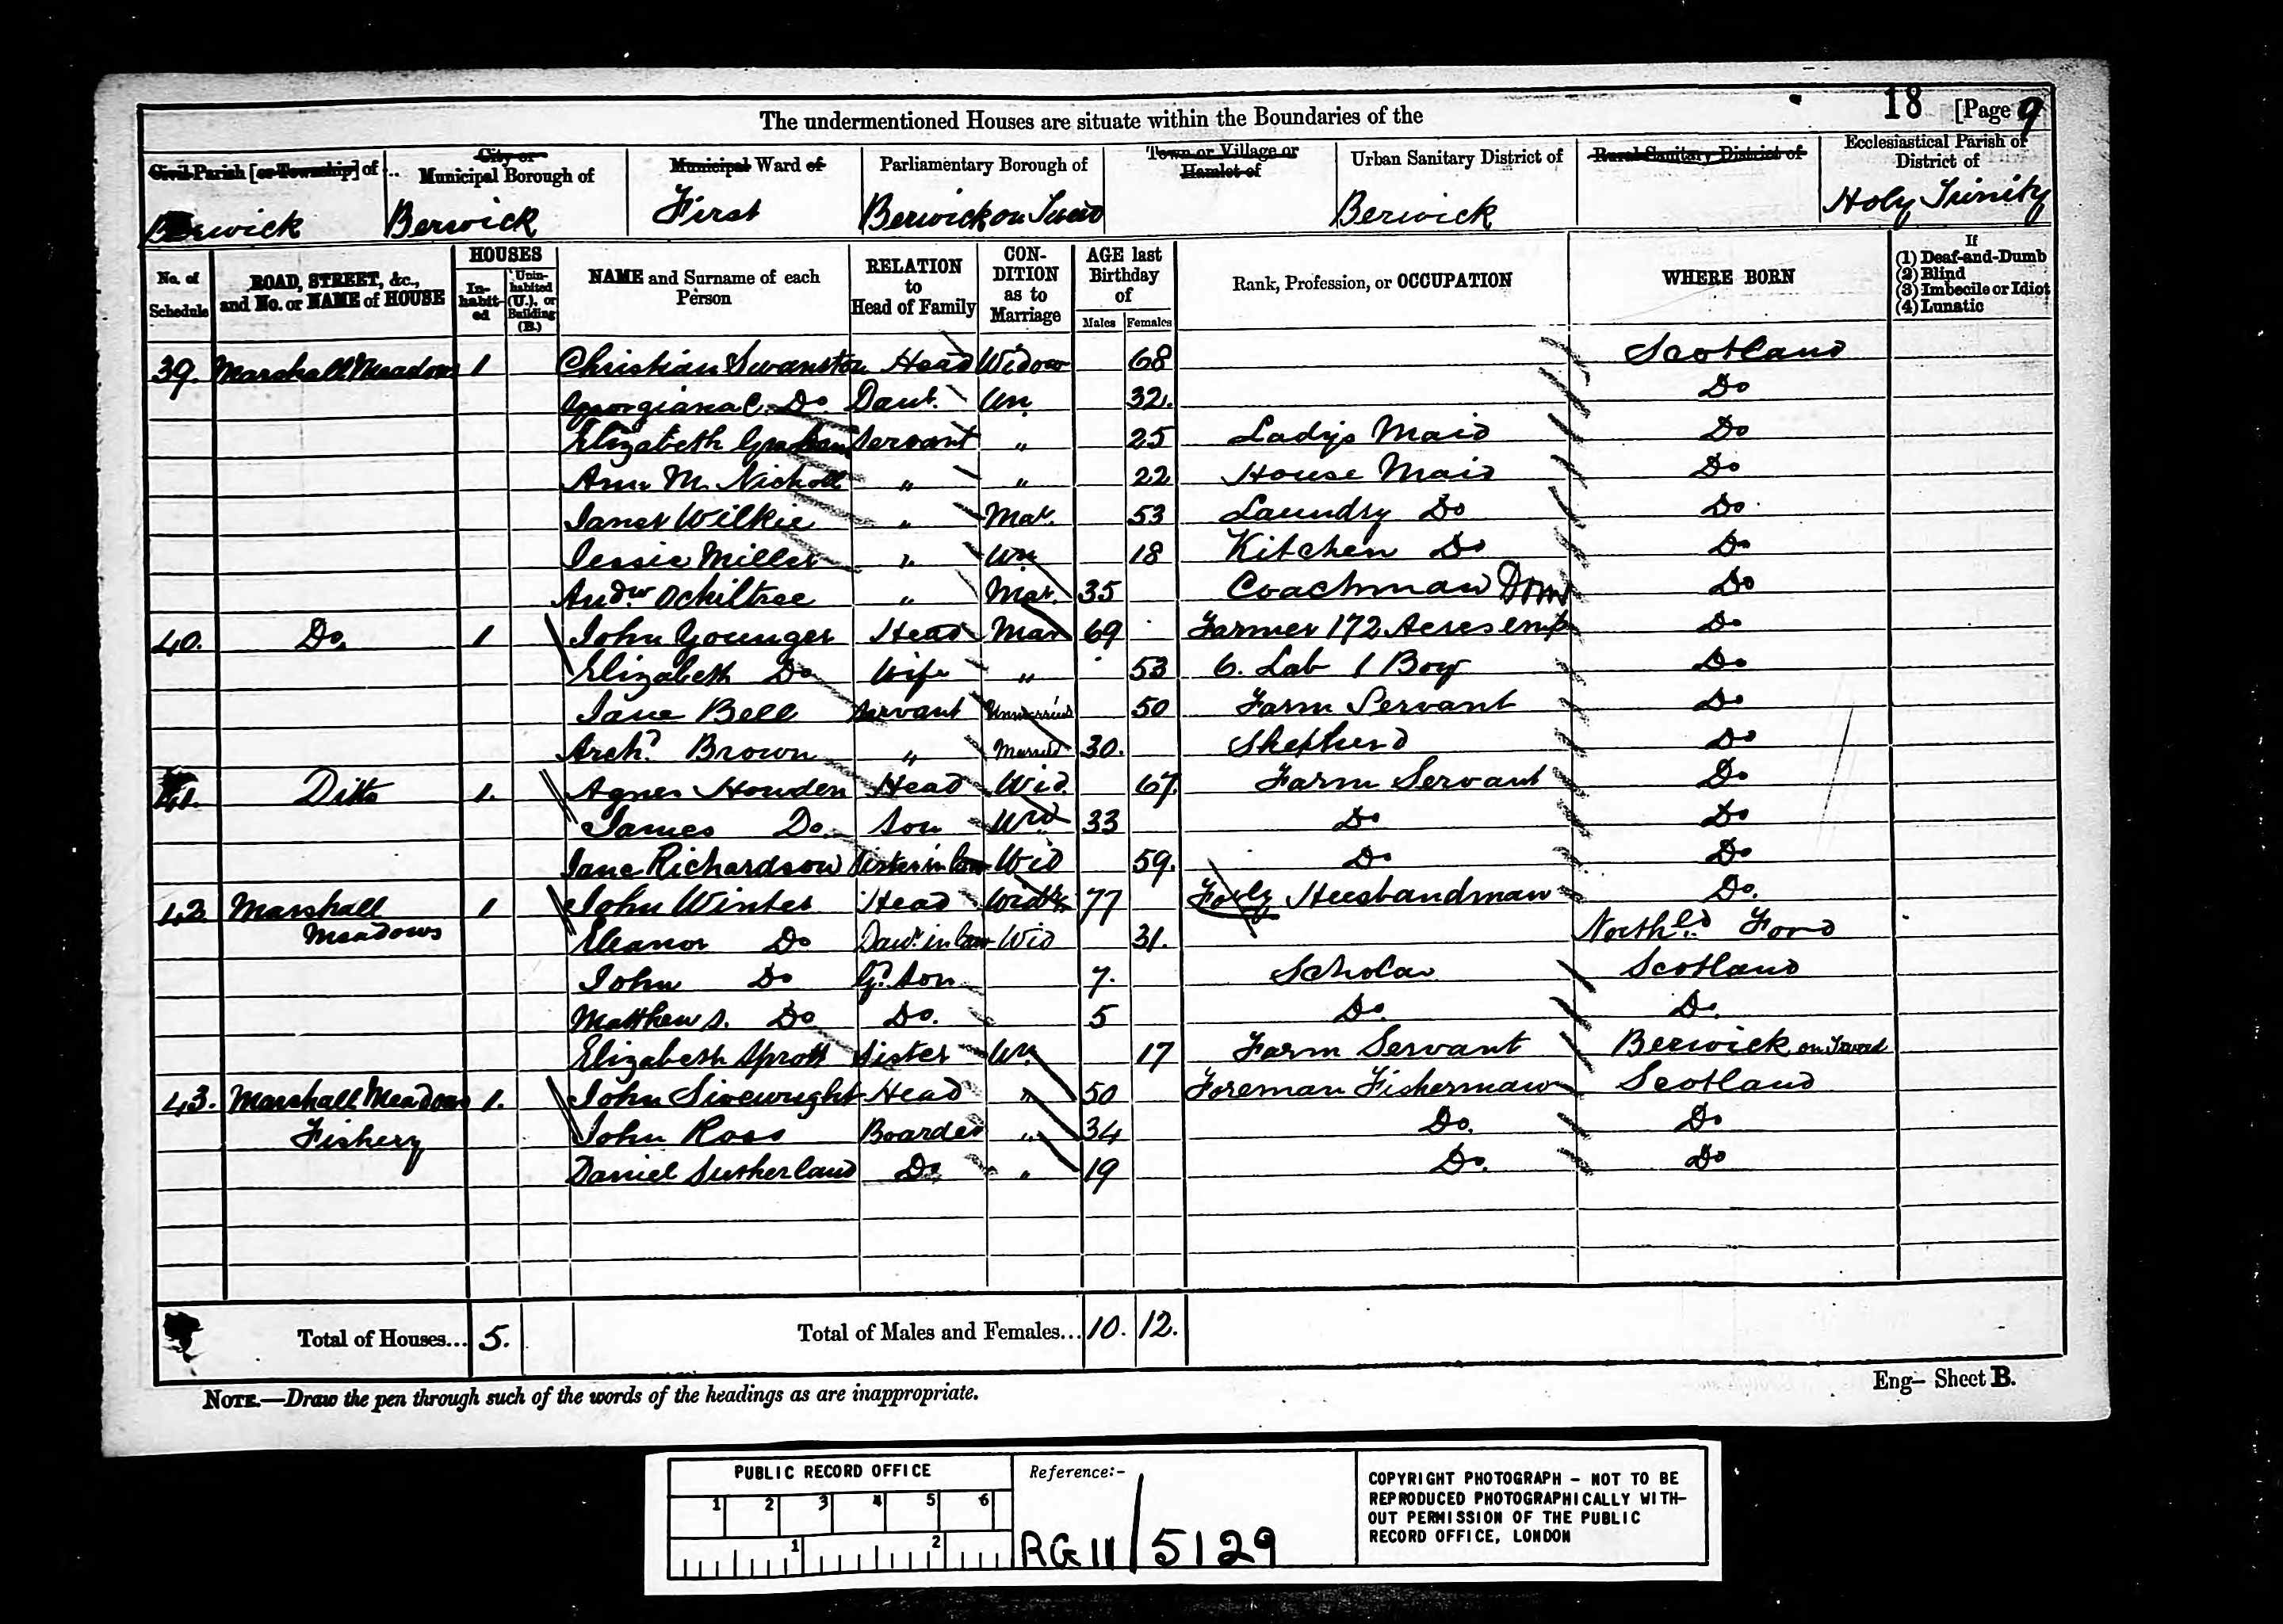 18 [Page 9
The undermentioned Houses are situate within the Boundaries of the
Civil Parish [or Township] of City or Municipal Borough of Municipal Ward of Parliamentary Borough of Town or Village or Hamlet of Urban Sanitary District of Rural Sanitary District of Ecclesiastical Parish or District of
Berwick Berwick First Berwick on Tweed Berwick Holy Trinity
No. of Schedule ROAD, STREET, &c., and No. or NAME of HOUSE HOUSES In-habit-ed Unin-habited (U.), or Building (B.) NAME and Surname of each Person RELATION to Head of Family CON-DITION as to Marriage AGE last Birthday of Males Females Rank, Profession, or OCCUPATION WHERE BORN If (1) Deaf-and-Dumb (2) Blind (3) Imbecile or Idiot (4) Lunatic
39. Marshall Meadows 1 Christian Swanston Head Widow 68 Scotland
Georgiana C. Do. Daut. Un. 32. Do
Elizabeth Graham Servant " 25 Ladys Maid Do
Ann M. Nicholl " " 22 House Maid Do
Janet Wilkie " Mar. 53 Laundry Do Do
Jessie Miller " Un 18 Kitchen Do Do
Andw Ochiltree " Mar. 35 Coachman Dom Do
40. Do. 1 John Younger Head Mar 69 Farmer 172 Acres emp Do
Elizabeth Do Wife " 53 6. Lab 1 Boy Do
Jane Bell Servant Unmarried 50 Farm Servant Do
Archd. Brown " Married 30. Shepherd Do
41. Ditto 1. Agnes Howden Head Wid. 67. Farm Servant Do
James Do. Son Wid 33 Do Do
Jane Richardson Sister in law Wid 59. Do Do
42. Marshall Meadows 1 John Winter Head Widr 77 Husbandman Do.
Eleanor Do Dawr. in law Wid 31. Northld. Ford
John Do Gd. Son 7. Scholar Scotland
Matthew S. Do Do. 5 Do. Do.
Elizabeth Sprott Sister Un. 17 Farm Servant Berwick on Tweed
43. Marshall Meadows Fishery 1. John Sivewright Head " 50 Foreman Fisherman Scotland
John Ross Boarder " 34 Do. Do
Daniel Sutherland Do " 19 Do. Do
Total of Houses... 5. Total of Males and Females... 10. 12.
NOTE.—Draw the pen through such of the words of the headings as are inappropriate.
Eng– Sheet B.
PUBLIC RECORD OFFICE
1 2 3 4 5 6
1 2
Reference:-
RG 11 / 5129
COPYRIGHT PHOTOGRAPH – NOT TO BE
REPRODUCED PHOTOGRAPHICALLY WITH-
OUT PERMISSION OF THE PUBLIC
RECORD OFFICE, LONDON